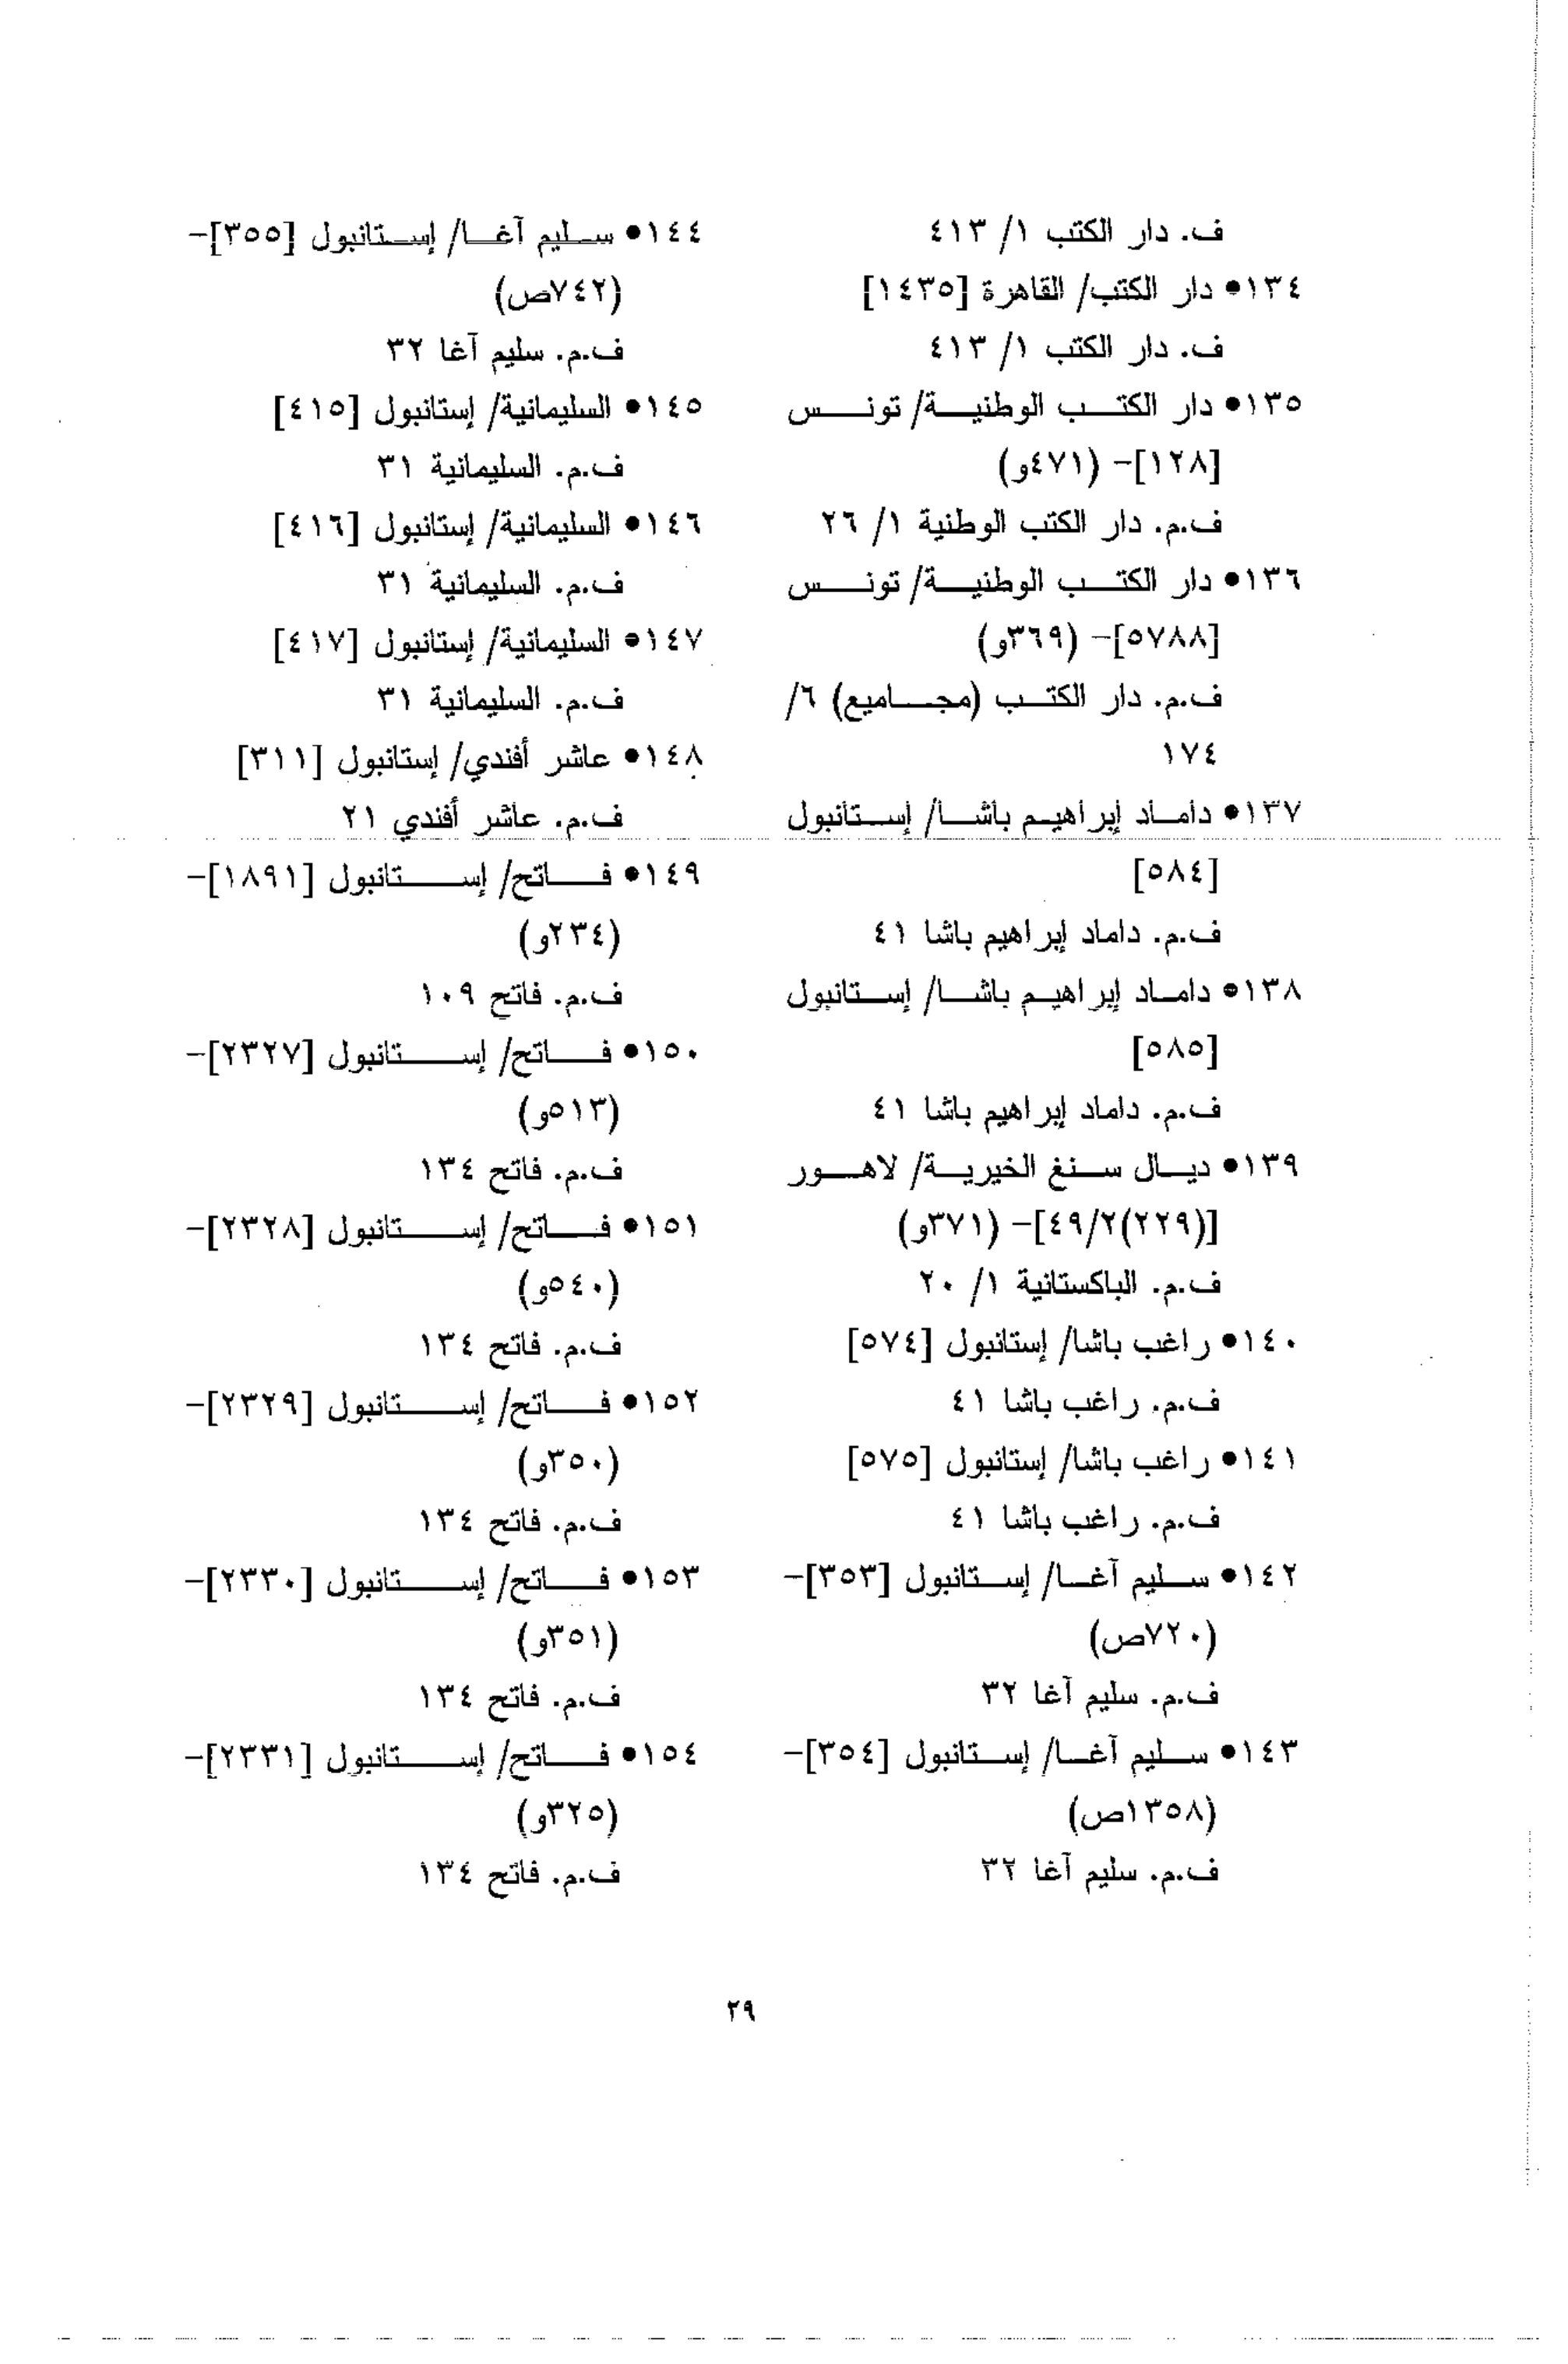 ف. دار الكتب ١/ ٤١٣
١٣٤• دار الكتب/ القاهرة [١٤٣٥]
ف. دار الكتب ١/ ٤١٣
١٣٥• دار الكتب الوطنية/ تونس
[١٢٨]– (٤٧١و)
ف.م. دار الكتب الوطنية ١/ ٢٦
١٣٦• دار الكتب الوطنية/ تونس
[٥٧٨٨]– (٣٦٩و)
ف.م. دار الكتب (مجاميع) ٦/
١٧٤
١٣٧• داماد إبراهيم باشا/ إستانبول
[٥٨٤]
ف.م. داماد إبراهيم باشا ٤١
١٣٨• داماد إبراهيم باشا/ إستانبول
[٥٨٥]
ف.م. داماد إبراهيم باشا ٤١
١٣٩• ديال سنغ الخيرية/ لاهور
[(٢٢٩)٤٩/٢]– (٣٧١و)
ف.م. الباكستانية ١/ ٢٠
١٤٠• راغب باشا/ إستانبول [٥٧٤]
ف.م. راغب باشا ٤١
١٤١• راغب باشا/ إستانبول [٥٧٥]
ف.م. راغب باشا ٤١
١٤٢• سليم آغا/ إستانبول [٣٥٣]–
(٧٢٠ص)
ف.م. سليم آغا ٣٢
١٤٣• سليم آغا/ إستانبول [٣٥٤]–
(١٣٥٨ص)
ف.م. سليم آغا ٣٢
١٤٤• سليم آغا/ إستانبول [٣٥٥]–
(٧٤٢ص)
ف.م. سليم آغا ٣٢
١٤٥• السليمانية/ إستانبول [٤١٥]
ف.م. السليمانية ٣١
١٤٦• السليمانية/ إستانبول [٤١٦]
ف.م. السليمانية ٣١
١٤٧• السليمانية/ إستانبول [٤١٧]
ف.م. السليمانية ٣١
١٤٨• عاشر أفندي/ إستانبول [٣١١]
ف.م. عاشر أفندي ٢١
١٤٩• فاتح/ إستانبول [١٨٩١]–
(٢٣٤و)
ف.م. فاتح ١٠٩
١٥٠• فاتح/ إستانبول [٢٣٢٧]–
(٥١٣و)
ف.م. فاتح ١٣٤
١٥١• فاتح/ إستانبول [٢٣٢٨]–
(٥٤٠و)
ف.م. فاتح ١٣٤
١٥٢• فاتح/ إستانبول [٢٣٢٩]–
(٣٥٠و)
ف.م. فاتح ١٣٤
١٥٣• فاتح/ إستانبول [٢٣٣٠]–
(٣٥١و)
ف.م. فاتح ١٣٤
١٥٤• فاتح/ إستانبول [٢٣٣١]–
(٣٢٥و)
ف.م. فاتح ١٣٤
٢٩